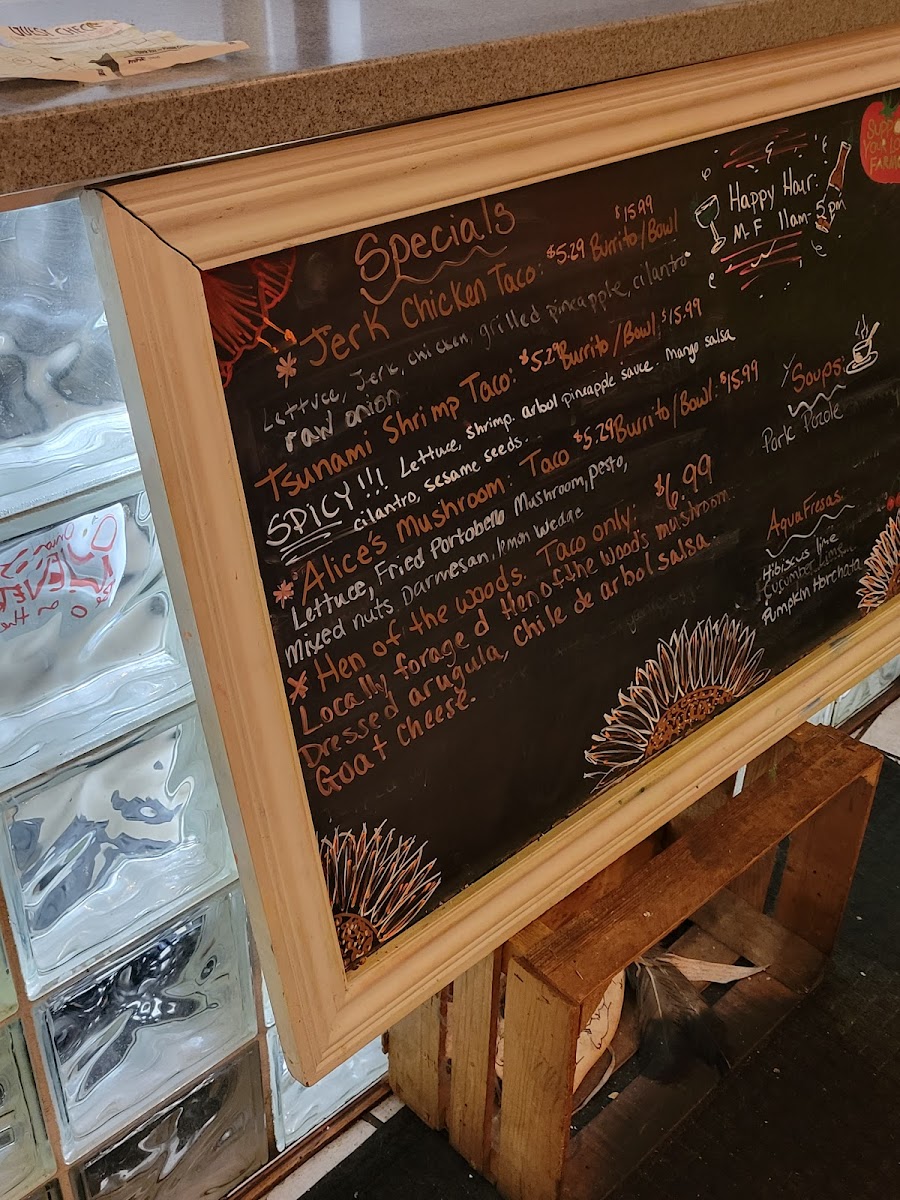 GUEST CHECK
Specials
* Jerk Chicken Taco: $5.29 Burrito/Bowl $15.99
Lettuce, Jerk, chicken, grilled pineapple, cilantro
raw onion
Tsunami Shrimp Taco: $5.29 Burrito/Bowl: $15.99
SPICY!!! Lettuce, shrimp. arbol pineapple sauce. Mango salsa
cilantro, sesame seeds.
* Alice's Mushroom: Taco $5.29 Burrito/Bowl: $15.99
Lettuce, Fried Portobello Mushroom, pesto,
Mixed nuts, Parmesan, lemon wedge
* Hen of the woods. Taco only: $6.99
Locally foraged Hen of the woods mushroom.
Dressed arugula, chile de arbol salsa.
Goat cheese.
Happy Hour:
M-F 11am-5pm
Soups:
Pork Pozole
Agua Fresas
Hibiscus lime
Cucumber
Pumpkin Horchata
YOUR